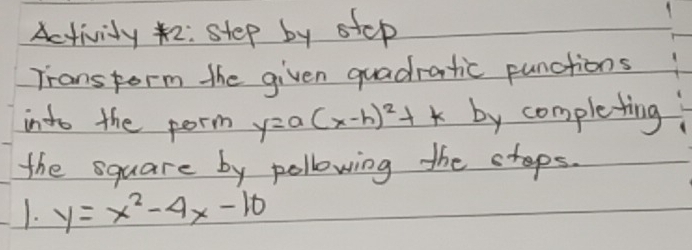 Activity #2: step by step
Transporm the given quadratic punctions
into the porm y=a(x-h)²+k by completing
the square by pollowing the steps.
1. y = x²-4x-10